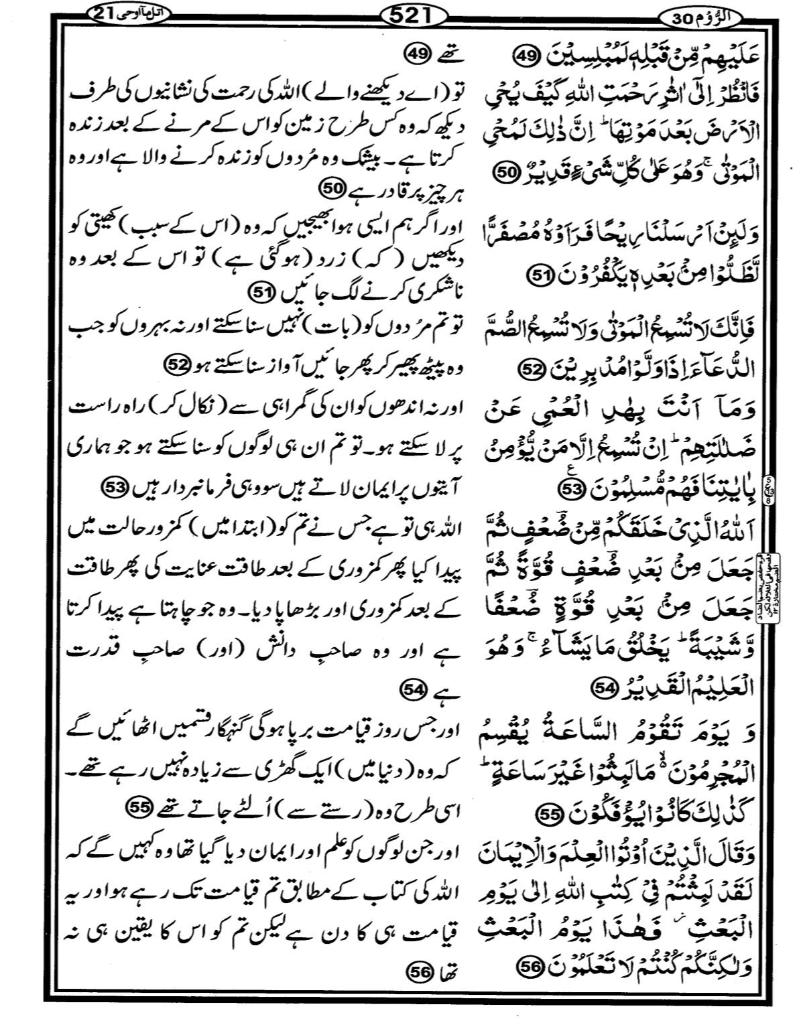 الرُّوْم 30
521
اتل ما اوحی 21
عَلَيْهِمْ مِّنْ قَبْلِهٖ لَمُبْلِسِيْنَ 49
فَانْظُرْ اِلٰۤى اٰثٰرِ رَحْمَتِ اللّٰهِ كَيْفَ يُحْيِ
الْاَرْضَ بَعْدَ مَوْتِهَا ؕ اِنَّ ذٰلِكَ لَمُحْيِ
الْمَوْتٰى ۚ وَهُوَ عَلٰى كُلِّ شَىْءٍ قَدِيْرٌ 50
وَلَئِنْ اَرْسَلْنَا رِيْحًا فَرَاَوْهُ مُصْفَرًّا
لَّظَلُّوْا مِنْۢ بَعْدِهٖ يَكْفُرُوْنَ 51
فَاِنَّكَ لَا تُسْمِعُ الْمَوْتٰى وَلَا تُسْمِعُ الصُّمَّ
الدُّعَآءَ اِذَا وَلَّوْا مُدْبِرِيْنَ 52
وَمَاۤ اَنْتَ بِهٰدِ الْعُمْيِ عَنْ
ضَلٰلَتِهِمْ ؕ اِنْ تُسْمِعُ اِلَّا مَنْ يُّؤْمِنُ
بِاٰيٰتِنَا فَهُمْ مُّسْلِمُوْنَ 53
اَللّٰهُ الَّذِىْ خَلَقَكُمْ مِّنْ ضُعْفٍ ثُمَّ
جَعَلَ مِنْۢ بَعْدِ ضُعْفٍ قُوَّةً ثُمَّ
جَعَلَ مِنْۢ بَعْدِ قُوَّةٍ ضُعْفًا
وَّشَيْبَةً ؕ يَخْلُقُ مَا يَشَآءُ ۚ وَهُوَ
الْعَلِيْمُ الْقَدِيْرُ 54
وَ يَوْمَ تَقُوْمُ السَّاعَةُ يُقْسِمُ
الْمُجْرِمُوْنَ ۙ مَا لَبِثُوْا غَيْرَ سَاعَةٍ ؕ
كَذٰلِكَ كَانُوْا يُؤْفَكُوْنَ 55
وَقَالَ الَّذِيْنَ اُوْتُوا الْعِلْمَ وَالْاِيْمَانَ
لَقَدْ لَبِثْتُمْ فِىْ كِتٰبِ اللّٰهِ اِلٰى يَوْمِ
الْبَعْثِ ۫ فَهٰذَا يَوْمُ الْبَعْثِ
وَلٰكِنَّكُمْ كُنْتُمْ لَا تَعْلَمُوْنَ 56
تھے 49
تو (اے دیکھنے والے) اللہ کی رحمت کی نشانیوں کی طرف
دیکھ کہ وہ کس طرح زمین کو اس کے مرنے کے بعد زندہ
کرتا ہے۔ بیشک وہ مُردوں کو زندہ کرنے والا ہے اور وہ
ہر چیز پر قادر ہے 50
اور اگر ہم ایسی ہوا بھیجیں کہ وہ (اس کے سبب) کھیتی کو
دیکھیں (کہ) زرد (ہو گئی ہے) تو اس کے بعد وہ
ناشکری کرنے لگ جائیں 51
تو تم مُردوں کو (بات) نہیں سنا سکتے اور نہ بہروں کو جب
وہ پیٹھ پھیر کر پھر جائیں آواز سنا سکتے ہو 52
اور نہ اندھوں کو ان کی گمراہی سے (نکال کر) راہ راست
پر لا سکتے ہو۔ تو تم ان ہی لوگوں کو سنا سکتے ہو جو ہماری
آیتوں پر ایمان لاتے ہیں سو وہی فرمانبردار ہیں 53
اللہ ہی تو ہے جس نے تم کو (ابتدا میں) کمزور حالت میں
پیدا کیا پھر کمزوری کے بعد طاقت عنایت کی پھر طاقت
کے بعد کمزوری اور بڑھاپا دیا۔ وہ جو چاہتا ہے پیدا کرتا
ہے اور وہ صاحبِ دانش (اور) صاحبِ قدرت
ہے 54
اور جس روز قیامت برپا ہوگی گنہگار قسمیں اٹھائیں گے
کہ وہ (دنیا میں) ایک گھڑی سے زیادہ نہیں رہے تھے۔
اسی طرح وہ (رستے سے) اُلٹے جاتے تھے 55
اور جن لوگوں کو علم اور ایمان دیا گیا تھا وہ کہیں گے کہ
اللہ کی کتاب کے مطابق تم قیامت تک رہے ہو اور یہ
قیامت ہی کا دن ہے لیکن تم کو اس کا یقین ہی نہ
تھا 56